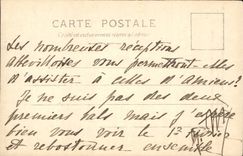 CARTE POSTALE
Les nombreuses réceptions
abbevilloises vous permettront-elles
d'assister à celles d'Amiens?
Je ne suis pas des deux
premiers bals mais j'espère
bien vous voir le 1er février
et rebostonner ensemble